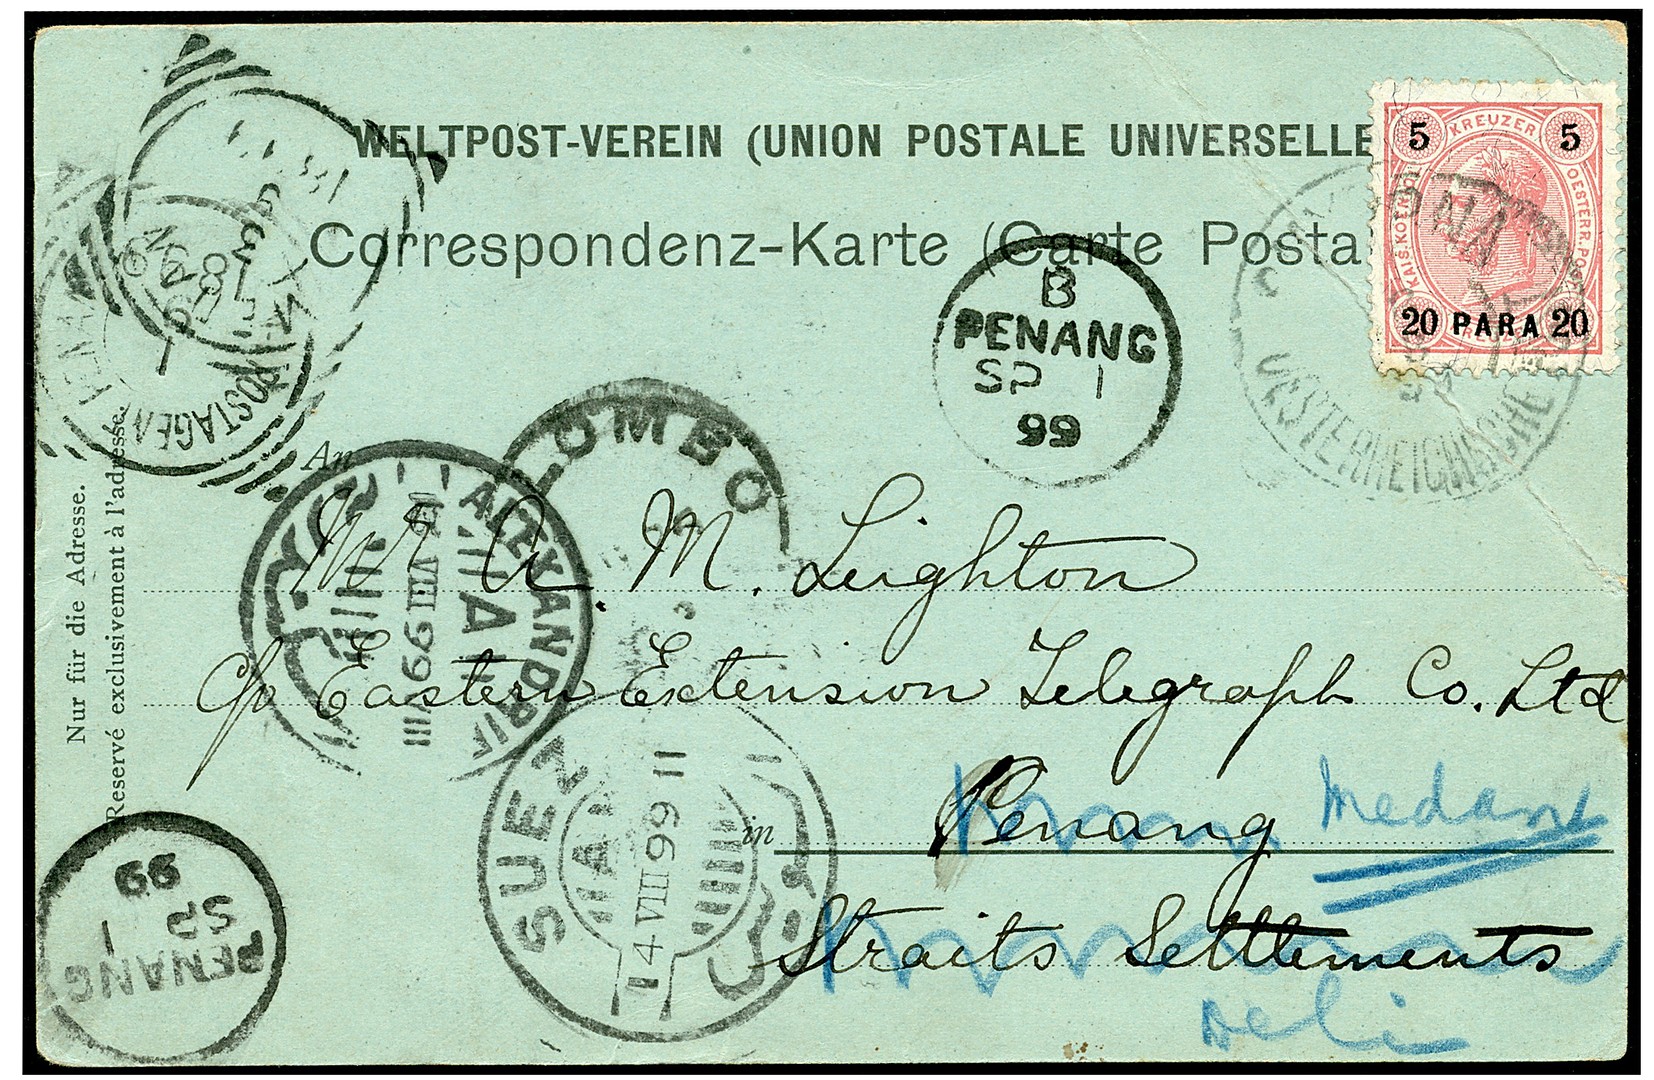 WELTPOST-VEREIN (UNION POSTALE UNIVERSELLE
Correspondenz-Karte (Carte Posta
5 KREUZER 5
KAIS. KOENIGL. OESTERR. POST
20 PARA 20
OESTERREICHISCHE
B
PENANG
SP 1
99
LOMBO
POSTAGENT
ALEXANDRIE
VIII 99
A
SUEZ
14 VIII 99 11
A
PENANG
SP 1
99
Nur für die Adresse.
Reservé exclusivement à l'adresse.
An
Mr A. M. Leighton
c/o Eastern Extension Telegraph Co. Ltd
in
Penang Medan
Straits Settlements
Deli